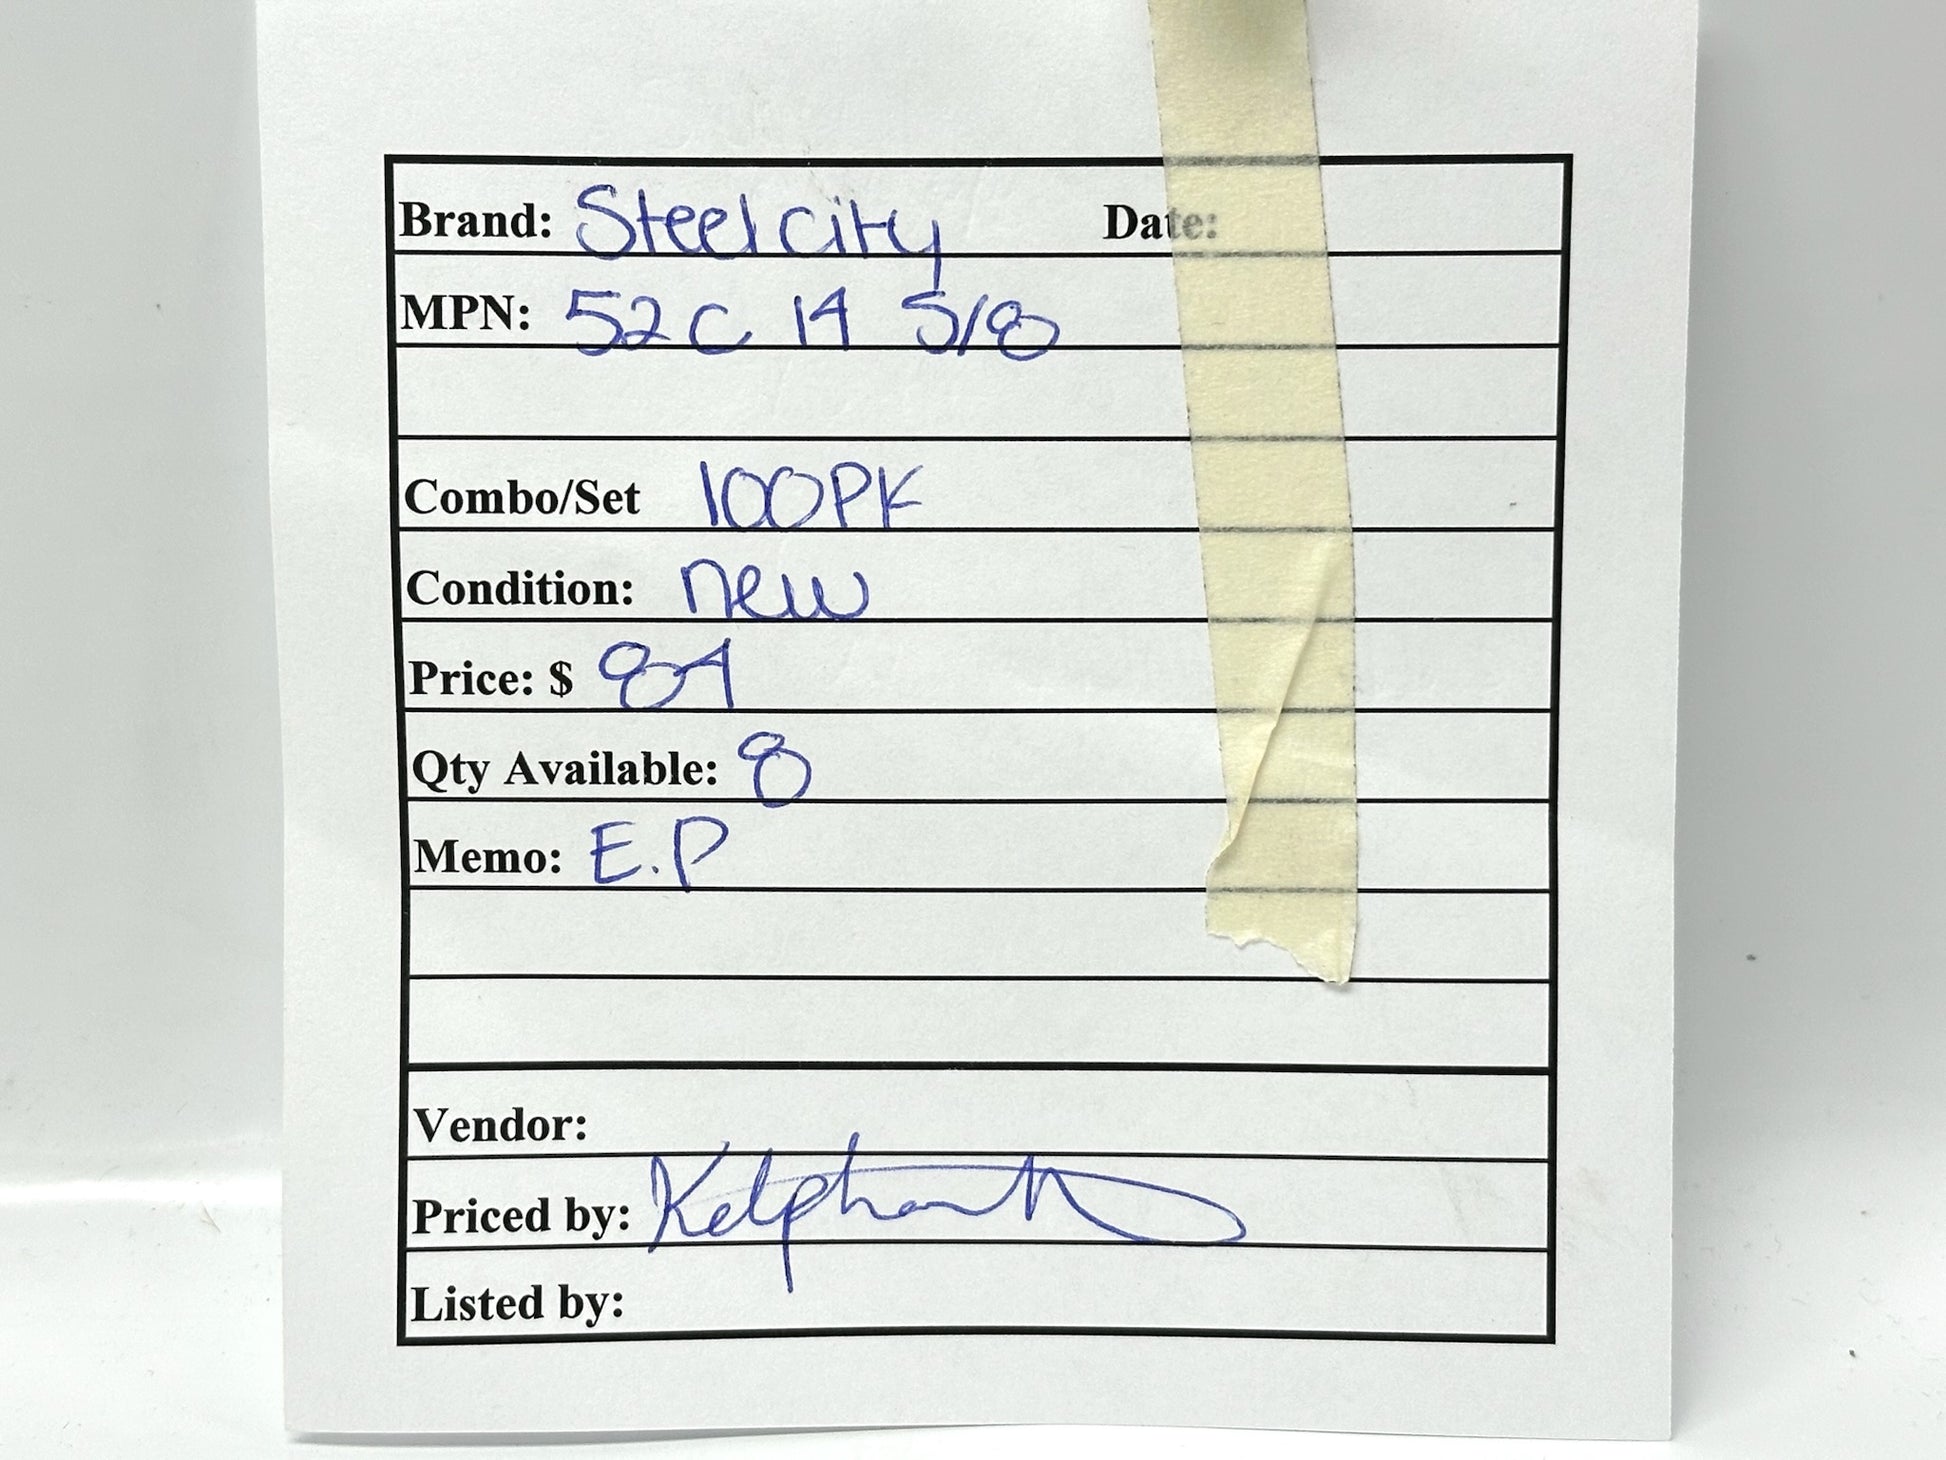 Brand: Steel city Date:
MPN: 52C 14 5/8
Combo/Set 100PK
Condition: new
Price: $ 84
Qty Available: 8
Memo: E.P
Vendor:
Priced by:
Listed by: